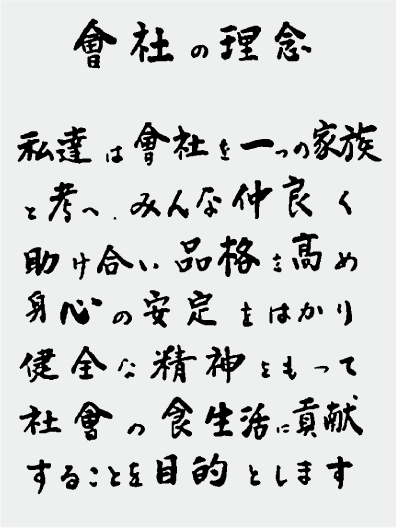 會社の理念
私達は會社を一つの家族
と考へ.みんな仲良く
助け合い品格を高め
身心の安定をはかり
健全な精神をもって
社會の食生活に貢献
することを目的とします